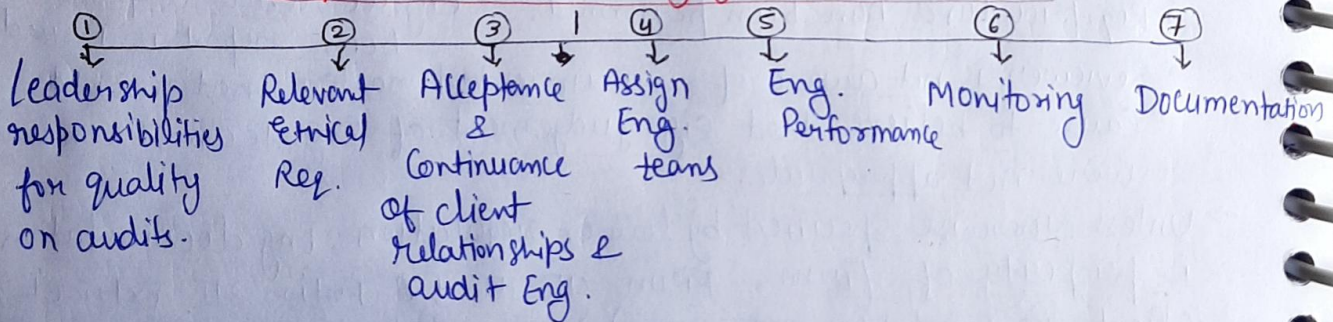 ① ② ③ ④ ⑤ ⑥ ⑦
Leadership
responsibilities
for quality
on audits.
Relevant
Ethical
Req.
Acceptance
&
Continuance
of client
relationships &
audit Eng.
Assign
Eng.
teams
Eng.
Performance
Monitoring
Documentation